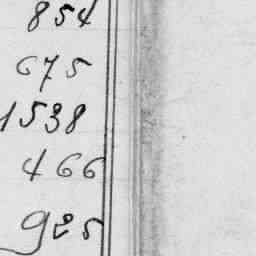 854
675
1538
466
925